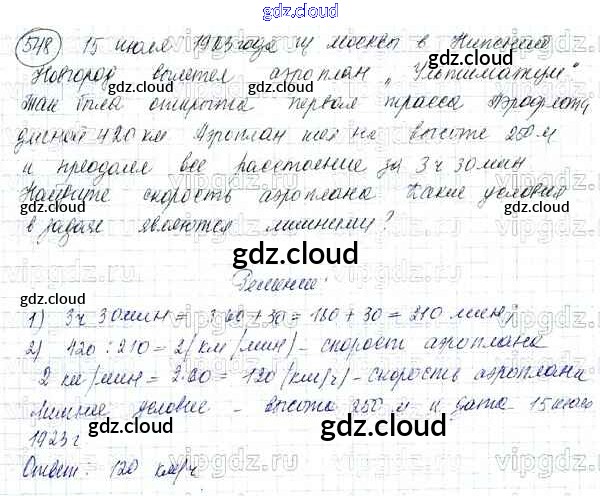 gdz.cloud
548 15 июля 1923 года из Москвы в Нижний
Новгород вылетел аэроплан „Ультиматум".
Так была открыта первая трасса Аэрофлота
длиной 420 км Аэроплан шёл на высоте 250 м
и преодолел все расстояние за 3 ч 30 мин
Найдите скорость аэроплана Какие условия
в задаче являются лишними?
gdz.cloud
Решение:
1) 3ч 30мин = 3·60+30=180+30=210 мин;
2) 420:210=2(км/мин)-скорость аэроплана
2 км/мин=2·60=120(км/ч)-скорость аэроплана
Лишнее условие - высота 250 м и дата 15 июля
1923 г
Ответ: 120 км/ч
gdz.cloud
vipgdz.ru